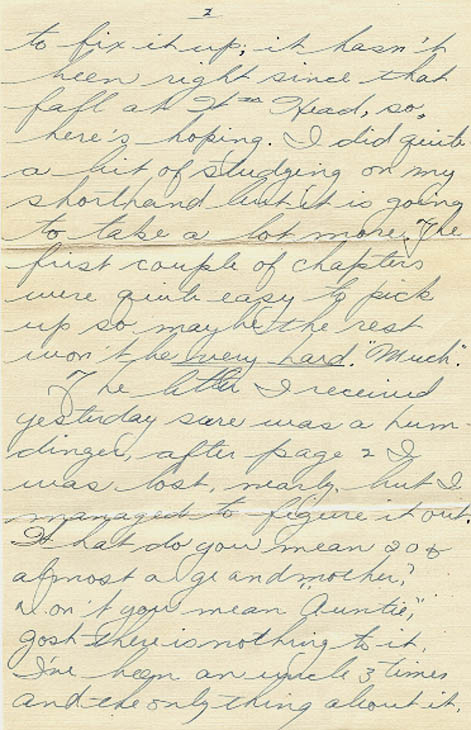 2
to fix it up, it hasn't
been right since that
fall at Head, so,
here's hoping. I did quite
a bit of studying on my
shorthand but it is going
to take a lot more. The
first couple of chapters
were quite easy to pick
up so maybe the rest
won't be very hard. "Much".
The letter I received
yesterday sure was a hum-
dinger, after page 2 I
was lost, nearly, but I
managed to figure it out.
What do you mean 20 &
almost a grandmother?
Don't you mean "Auntie",
gosh there is nothing to it.
I've been an uncle 3 times
and the only thing about it,